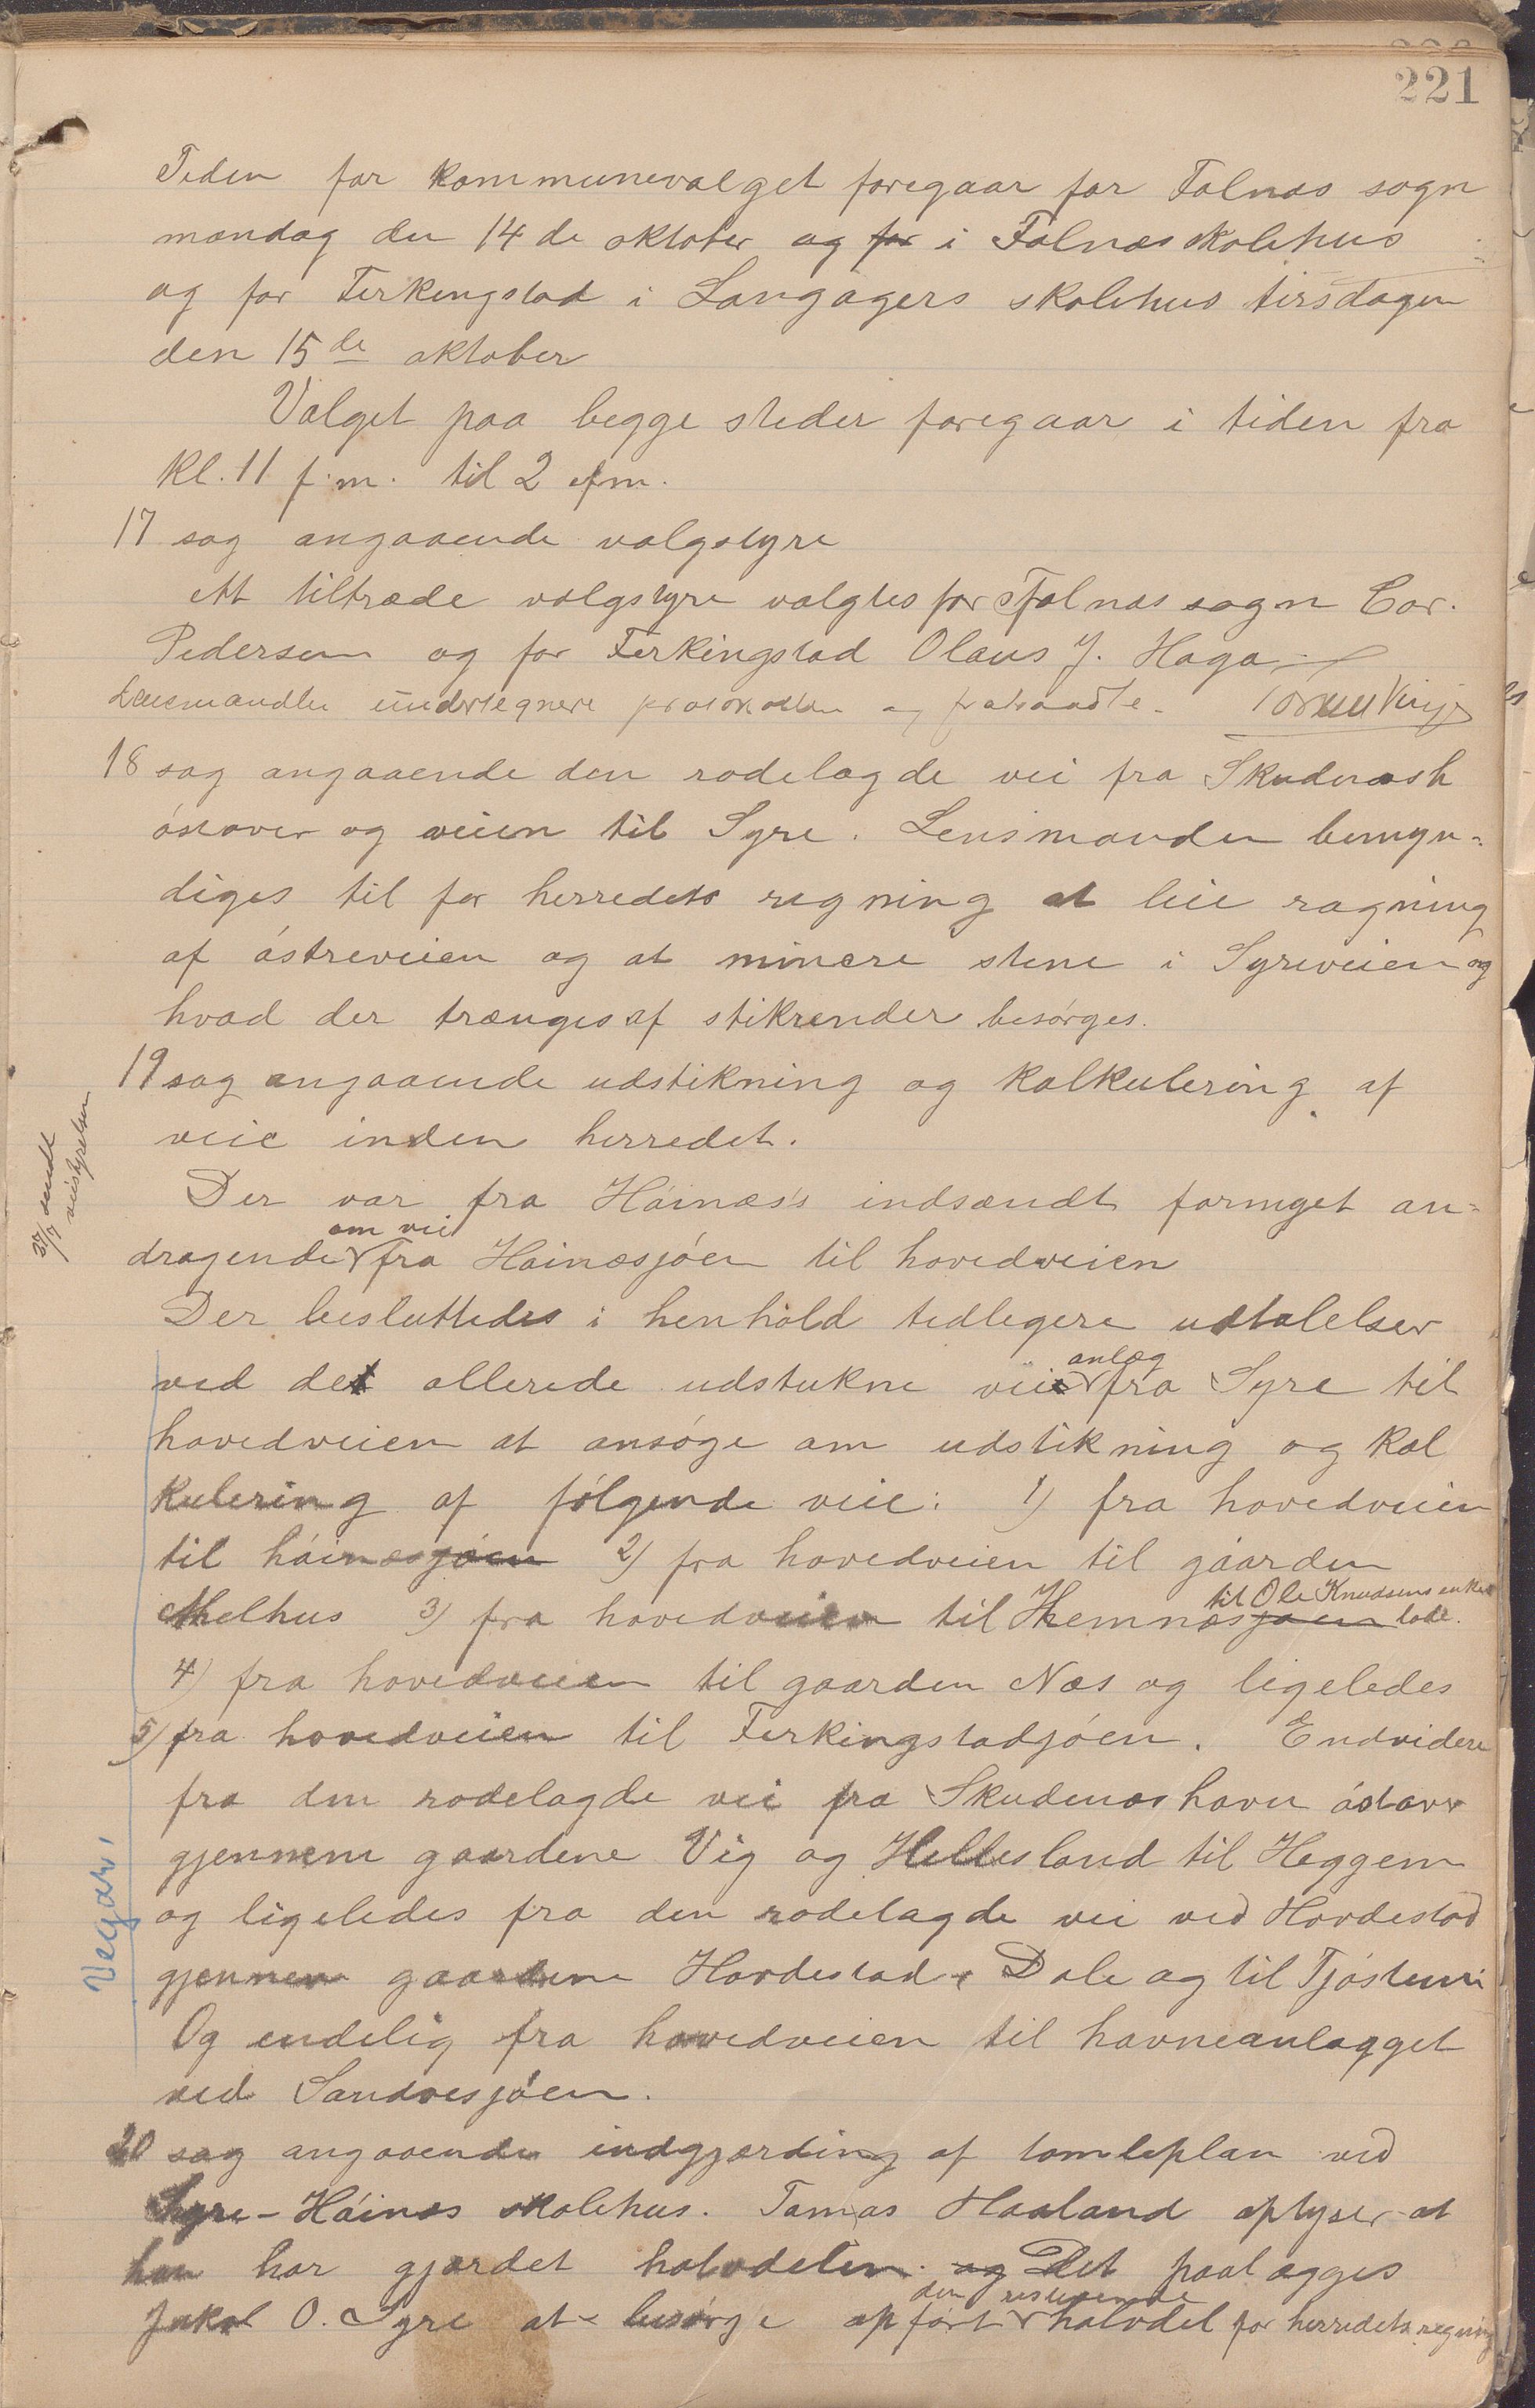 221
Tiden for kommunevalget foregaar for Falnæs sogn
mandag den 14de oktober og for i Falnæs skolehus
og for Ferkingstad i Langåger s skolehus tirsdagen
den 15de oktober
Valget paa begge steder foregaar i tiden fra
Kl. 11 f.m. til 2 efm.
17 sag angaaende valgstyre
At tiltræde valgstyre valgtes for Falnæs sogn Cor.
Pedersen og for Ferkingstad Olaus J. Haga
Lensmanden undertegnere protokollen og fratraadte.
18 sag angaaende den rodelagde vei fra Skudenæsh
óstover og veien til Syre. Lensmanden bemyn-
diges til for herredets regning at leie ragning
af óstreveien og at minere stene i Syreveien og
hvad der trænges af stikrender besórges.
19 sag angaaende udstikning og kalkulering af
veie inden herredet.
27/7 sendt veistyrelsen
Der var fra Háinæs's indsændt fornyet an-
dragende om vei fra Hainæsjóen til hovedveien
Der besluttedes i henhold tedligere udtalelser
ved det allerede udstukne vei anlæg fra Syre til
hovedveien at ansóge om udstikning og kal
kulering af fólgende veie: 1) fra hovedveien
til háinæsjóen 2) fra hovedveien til gaarden
Melhus 3) fra hovedveien til Hemnæsjóen til Ole Knudsens enkes lode.
4) fra hovedveien til gaarden Næs og ligeledes
5) fra hovedveien til Ferkingstadjóen. Endvidere
fra den rodelagde vei fra Skudenæshavn óstover
gjennem gaardene Vig og Hellesland til Heggem
Vegar,
og ligeledes fra den rodelagde vei ved Hordestad
gjennem gaardene Hordestad, Dale og til Tjósteim
Og endelig fra hovedveien til havneanlægget
ved Sandvesjóen.
20 sag angaaende indgjærding af tomteplan ved
Syre-Háinæs skolehus. Tamas Haaland oplyser at
han har gjærdet halvdelen. og Det paalægges
Jakob O. Syre at besórge opfórt den resterende halvdel for herredets regning